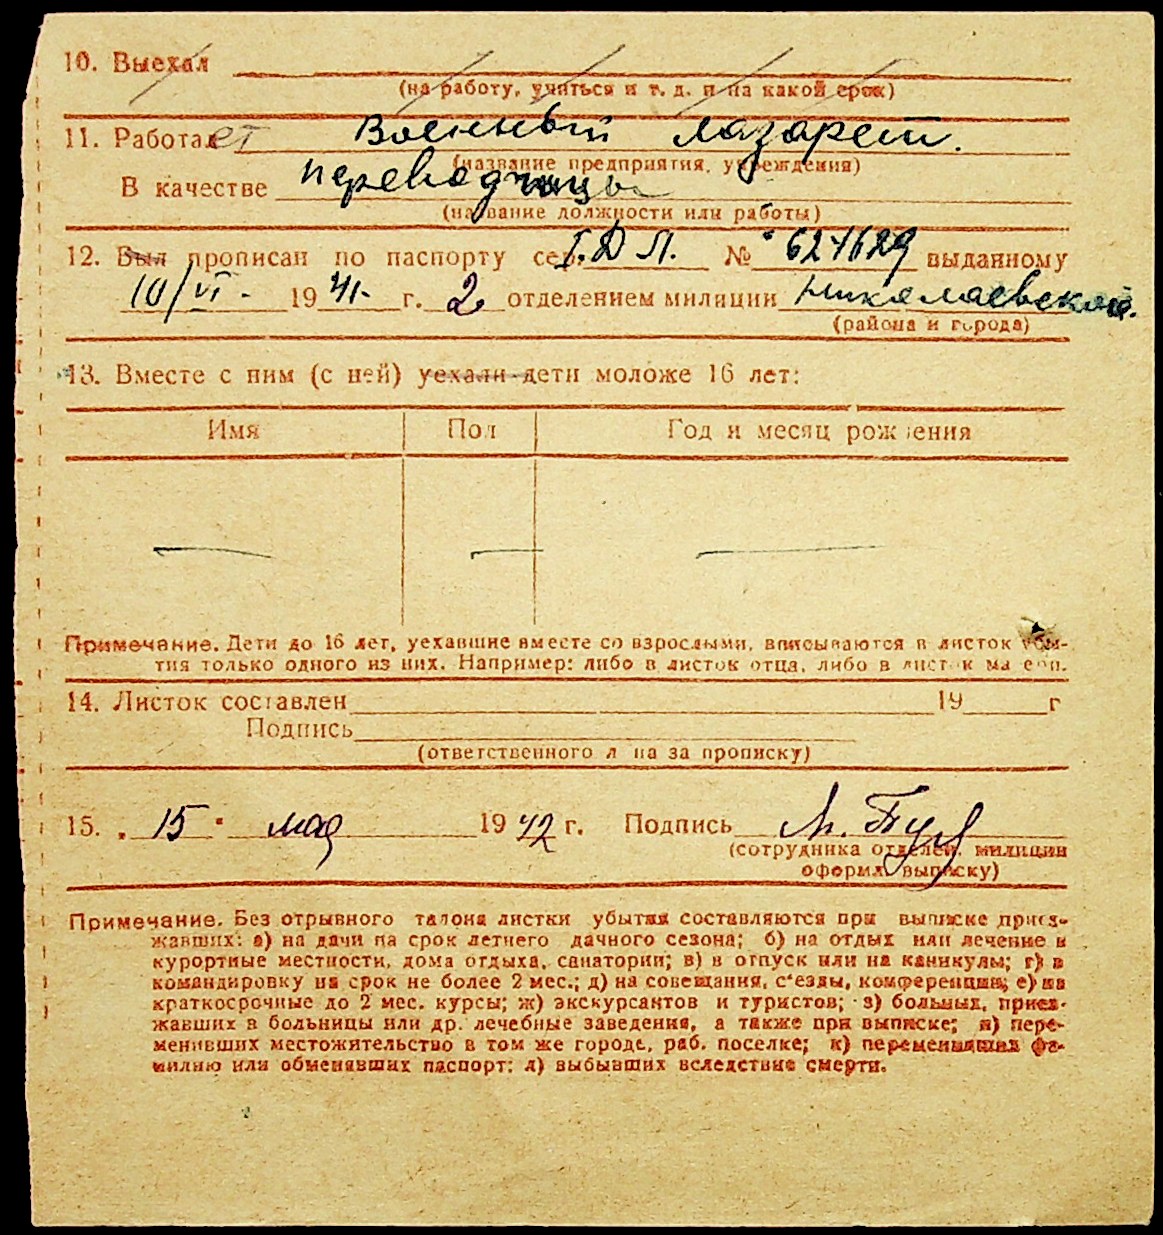 10. Выехал
(на работу, учиться и т. д. и на какой срок)
11. Работает Военный лазарет.
(название предприятия, учреждения)
В качестве переводчицы
(название должности или работы)
12. Был прописан по паспорту сер. I. Д Л. № 621629 выданному
10/VI - 1941. г. 2 отделением милиции Николаевской.
(района и города)
13. Вместе с ним (с ней) уехали дети моложе 16 лет:
Имя Пол Год и месяц рождения
— — —
Примечание. Дети до 16 лет, уехавшие вместе со взрослыми, вписываются в листок убы-
тия только одного из них. Например: либо в листок отца, либо в листок матери.
14. Листок составлен 19 г
Подпись
(ответственного лица за прописку)
15. " 15 " мая 1942 г. Подпись
(сотрудника отделен. милиции
оформл. выписку)
Примечание. Без отрывного талона листки убытия составляются при выписке приез-
жавших: а) на дачи на срок летнего дачного сезона; б) на отдых или лечение в
курортные местности, дома отдыха, санатории; в) в отпуск или на каникулы; г) в
командировку на срок не более 2 мес.; д) на совещания, с'езды, конференции; е) на
краткосрочные до 2 мес. курсы; ж) экскурсантов и туристов; з) больных, приез-
жавших в больницы или др. лечебные заведения, а также при выписке; и) пере-
менивших местожительство в том же городе, раб. поселке; к) переменивших фа-
милию или обменявших паспорт; л) выбывших вследствие смерти.